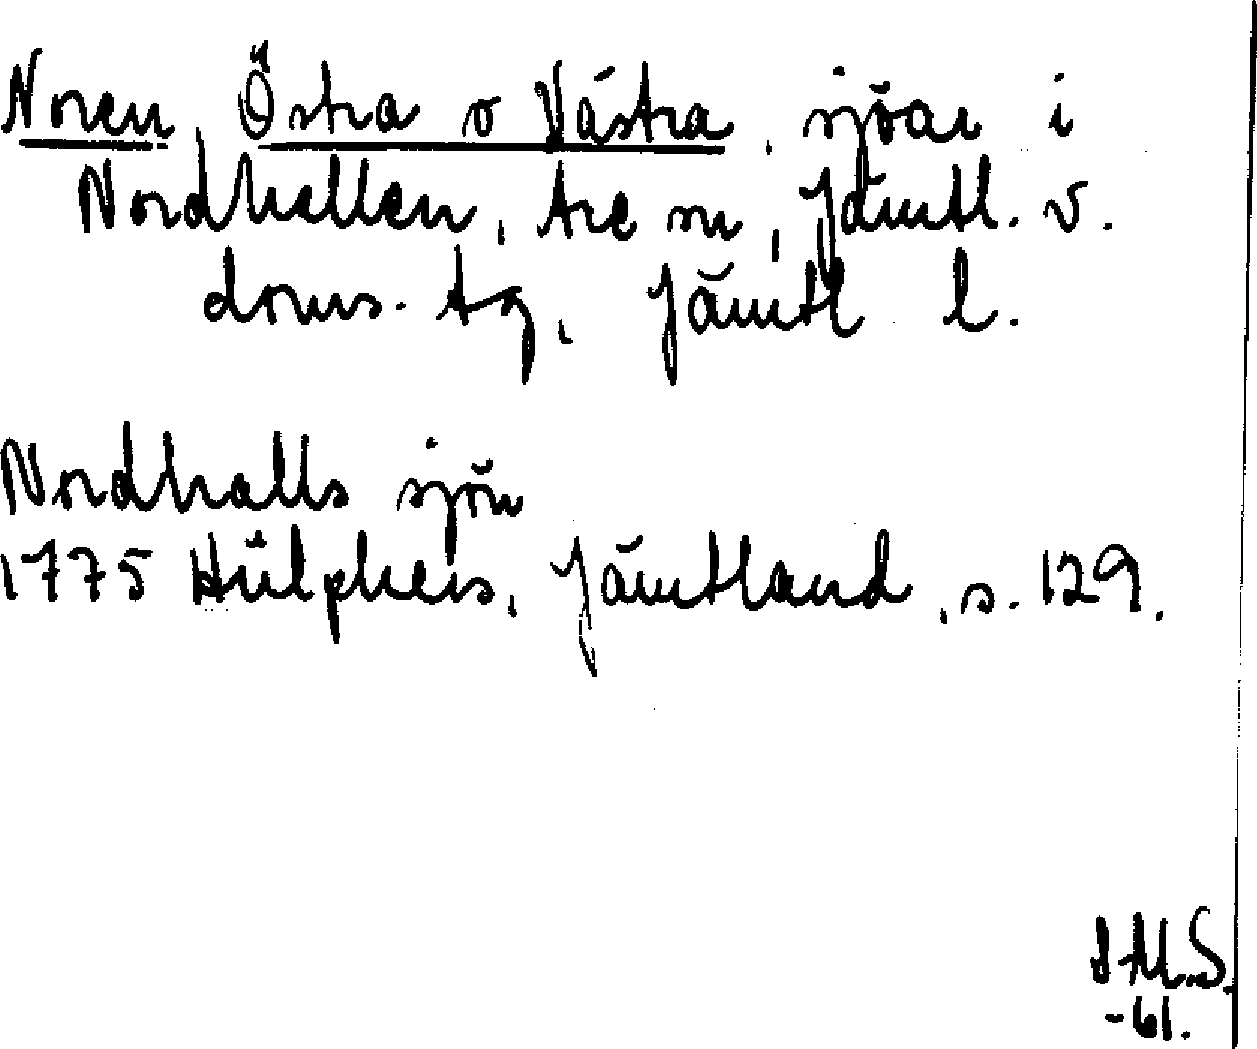 Noren, Östra o Västra, sjöar i
Nordhallen, Åre sn, Jämtl. v.
doms. tg, Jämtl l.
Nordhalls sjön
1775 Hülphers, Jämtland, s. 129.
M.S.
-61.